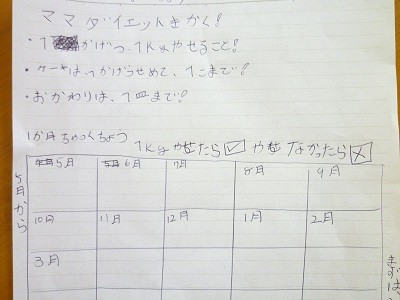 ママ ダイエットきかく!
・1かげつ、1Kgやせること!
・ケーキは、1かげつせめて、1こまで!
・おかわりは、1皿まで!
1か月ちゃっくちょう
1Kgやせたら☑ やせなかったら☒
5月から
5月 6月 7月 8月 9月
10月 11月 12月 1月 2月
3月
まずは、